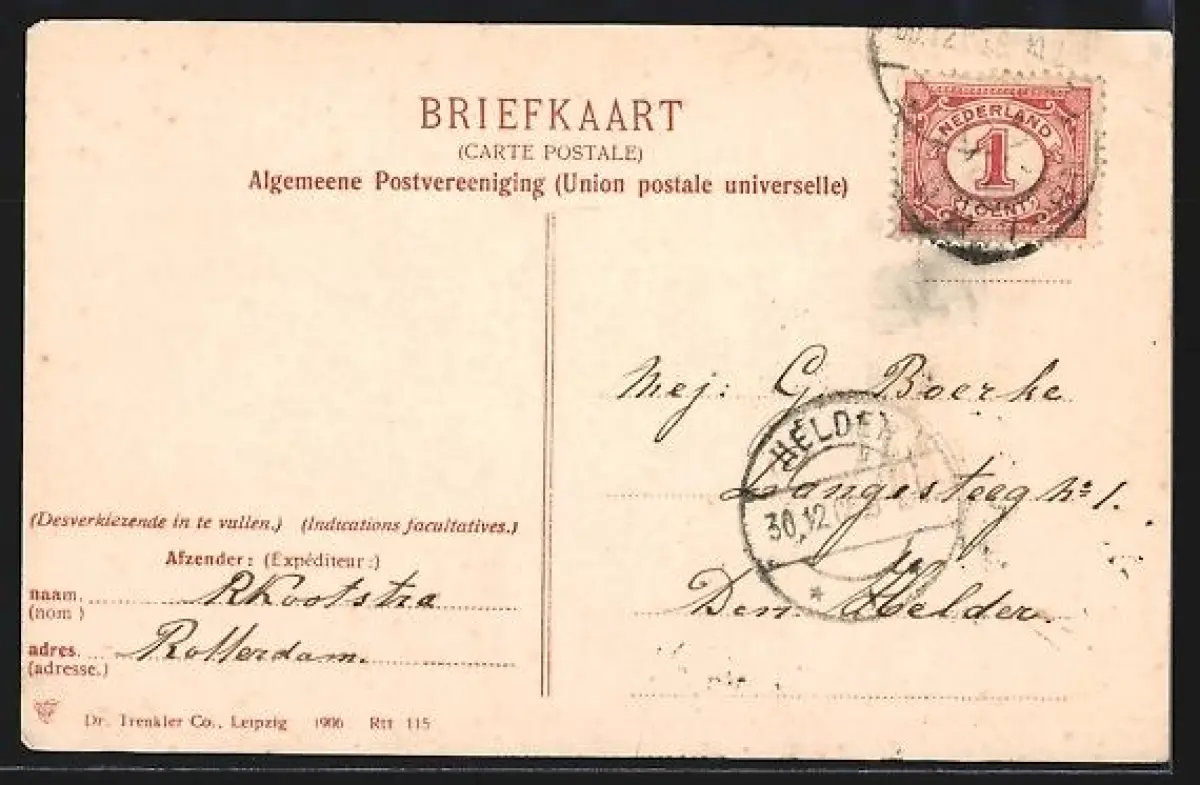 BRIEFKAART
(CARTE POSTALE)
Algemeene Postvereeniging (Union postale universelle)
NEDERLAND
1
CENT
Mej: G. Boerke
HELDE
Langesteeg no 1.
30.12
Den Helder.
(Desverkiezende in te vullen.) (Indications facultatives.)
Afzender: (Expéditeur:)
naam. RKootstra
(nom )
adres. Rotterdam.
(adresse.)
Dr. Trenkler Co., Leipzig 1906 Rtt 115